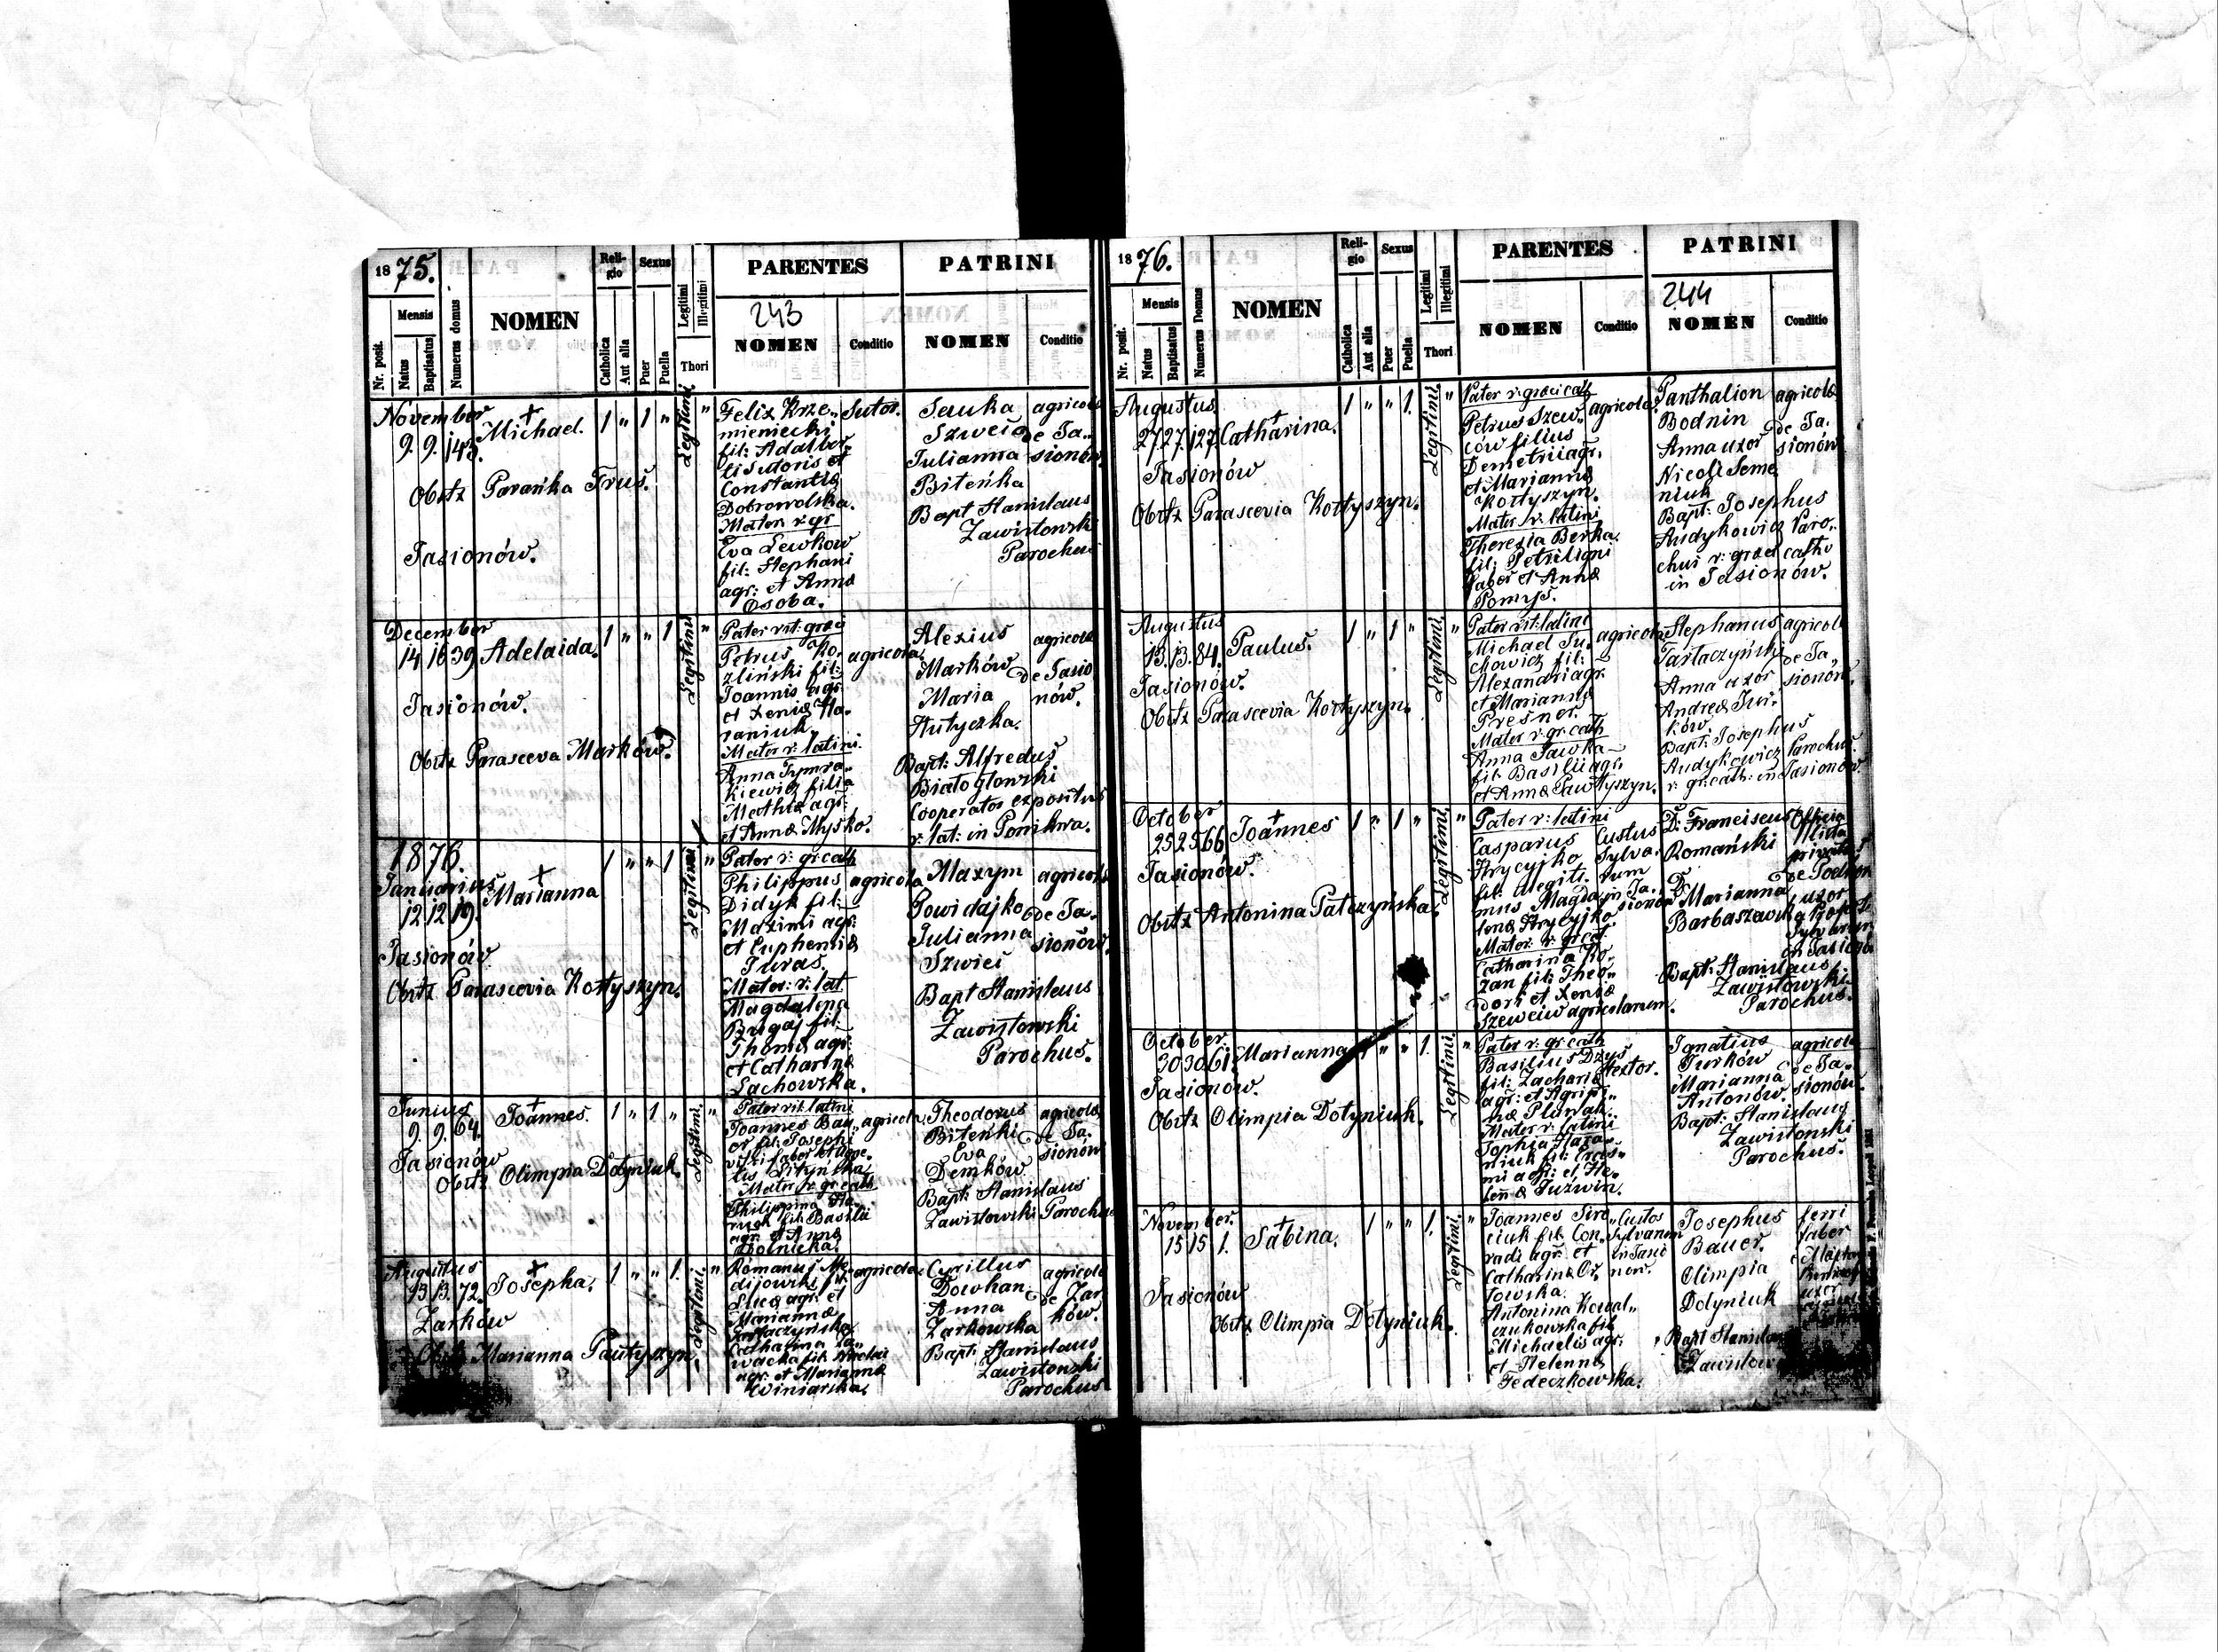 1875.
Nr. posit.
Mensis
Natus
Baptisatus
Numerus domus
NOMEN
Reli-
gio
Catholica
Aut alia
Sexus
Puer
Puella
Legitimi
Illegitimi
Thori
PARENTES
243
NOMEN
Conditio
PATRINI
NOMEN
Conditio
November
9. 9. 143.
Michael.
1 " 1 "
Legitimi
"
Obstz Parańka Truś.
Jasionów.
Felix Krze„
mieniecki
fil: Adalber
ti Sutoris et
Constantiæ
Dobrowolska.
Mater r. gr
Eva Lewkow
fil: Stephani
agr: et Annæ
Osoba.
Sutor.
Sauka
Szweic
Julianna
Biteńka
Bapt Stanislaus
Zawistowski
Parochus
agricolæ
de Ja„
sionów
December
14 16 39
Adelaida.
1 " " 1
Legitimi
"
Jasionów.
Obstz Parasceva Marków.
Pater rit: græci
Petrus Ko„
zliński fil:
Joannis agr:
et Xeniæ Ha„
raniuk.
Mater r: latini
Anna Tymra„
kiewicz filia
Mathiæ agr:
et Annæ Myśko.
agricola
Alexius
Marków
Maria
Hutyczka.
Bapt: Alfredus
Białogłowski
Cooperator expositus
r: lat: in Ponikwa.
agricolæ
de Jasio
nów.
1876.
Januarius
12 12 19.
Marianna
1 " " 1
Legitimi
"
Jasionów
Obstz Parascevia Kołtyszyn.
Pater r: gr cath
Philippus
Didyk fil:
Maximi agr:
et Euphemiæ
Juras.
Mater: r: lat
Magdalena
Brygaj fil:
Thomæ agr:
et Catharinæ
Lachowska.
agricola
Maxym
Powidajko
Julianna
Szwieć
Bapt Stanislaus
Zawistowski
Parochus.
agricolæ
de Ja„
sionów.
Junius
9. 9. 64.
Joannes.
1 " 1 "
Legitimi
"
Jasionów
Obstz Olimpia Dotyniuk.
Pater rit: latini
Joannes Bau„
er fil: Josephi
Mater r. gr cath
Philippina Ha„
fil: Basilii
agr. et Annæ
Dolnicka.
agricola
Theodorus
Biteńki
Eva
Demków
Bapt Stanislaus
Zawistowski Parochus
agricolæ
de Ja„
sionów
Augustus
13. 13. 72.
Josepha.
1 " " 1.
Legitimi
"
Zarków
Obstz Marianna Pautyszyn
Romanus Me„
dijowski fil:
Lucæ agr. et
Mariannæ
Tartaczyńska
Catharina
fil: Nicolai
agr. et Mariannæ
Winiarska.
agricola
Cyrillus
Dowhan
Anna
Zarkowska
Bapt: Stanislaus
Zawistowski
Parochus
agricolæ
de Zar
ków.
1876.
Nr. posit.
Mensis
Natus
Baptisatus
Numerus Domus
NOMEN
Reli-
gio
Catholica
Aut alia
Sexus
Puer
Puella
Legitimi
Illegitimi
Thori
PARENTES
NOMEN
Conditio
PATRINI
244
NOMEN
Conditio
Augustus
27 27. 127
Catharina.
1 " " 1.
Legitimi.
"
Jasionów
Obstz Parascevia Kołtyszyn.
Pater r: græci cath
Petrus Szew„
ców filius
Demetrii agr.
et Mariannæ
Kołtyszyn.
Mater r: latini
Theresia Berka.
fil: Petri ligni
faber et Annæ
Pomyś.
agricola
Panthalion
Bodnin
Anna uxor
Nicoli Seme
niuk
Bapt: Josephus
Audykowicz Paro„
chus r: græci cath
in Jasionów.
agricolæ
de Ja.
sionów
Augustus
13. 13. 84.
Paulus.
1 " 1 "
Legitimi.
"
Jasionów.
Obstz Parascevia Kołtyszyn.
Pater rit: latini
Michael Ju„
chowicz fil:
Alexandri agr:
et Mariannæ
Presner.
Mater r: gr cath
Anna Sawka
fil: Basilii agr:
et Annæ Pawłtyszyn.
agricola
Stephanus
Tartaczyński
Anna uxor
Andreæ Jur„
ków.
Bapt: Josephus
Audykowicz Parochus
r: gr: cath: in Jasionów
agricolæ
de Ja„
sionów.
October
25 25 66
Joannes
1 " 1 "
Legitimi.
"
Jasionów.
Obstz Antonina Patczyńska.
Pater r: latini
Casparus
Hrycyjko
fil: illegiti„
mus Magda„
lenæ Hrycyjko
Mater: r. gr cat
Catharina Ko„
zan fil: Theo„
dori et Xeniæ
Szewciw agricolarum.
Custos
Sylva„
rum
in Ja„
sionów
D. Franciscus
Romański
D. Marianna
Barbaszewska
Bapt: Stanislaus
Zawistowski
Parochus.
privatus
uxor
in Jasionów
October
30 30. 61.
Marianna
1 " " 1.
Legitimi.
"
Jasionów.
Obstz Olimpia Dotyniuk.
Pater r: gr cath
Basilius Dzyś
fil: Zachariæ
agr: et Agripi„
næ Pluwak.
Mater r: latini
Sophia Hara„
niuk fil: Eras„
mi agr: et He„
lenæ Juzwin.
textor.
Ignatius
Jurków
Marianna
Antonów.
Bapt: Stanislaus
Zawistowski
Parochus.
agricolæ
de Ja„
sionów.
November.
15 15 1.
Sabina.
1 " " 1.
Legitimi.
"
Jasionów
Obstz Olimpia Dotyniuk.
Joannes Siro„
ciuk fil: Con„
radi agr: et
Catharinæ Or„
łowska.
Antonina Kowal„
czukowska fil
Michaelis agr:
et Helennæ
Fedeczkowska.
Custos
Sylvarum
in Jasio
now.
Josephus
Bauer.
Olimpia
Dotyniuk
Bapt Stanislaus
ferri
faber
uxor